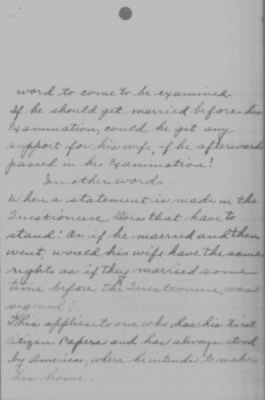 word to come to be examined.
If he should get married before his
Examination, could he get any
support for his wife, if he afterwards
passed in his Examination?
In other words
When a statement is made in the
Questioneire Does that have to
stand? Or if he married and then
went, would his wife have the same
rights as if they married some
time before the Questioneire was
signed?
This applies to one who has his First
Citizen Papers and has always stood
by America, where he intends to make
his home.